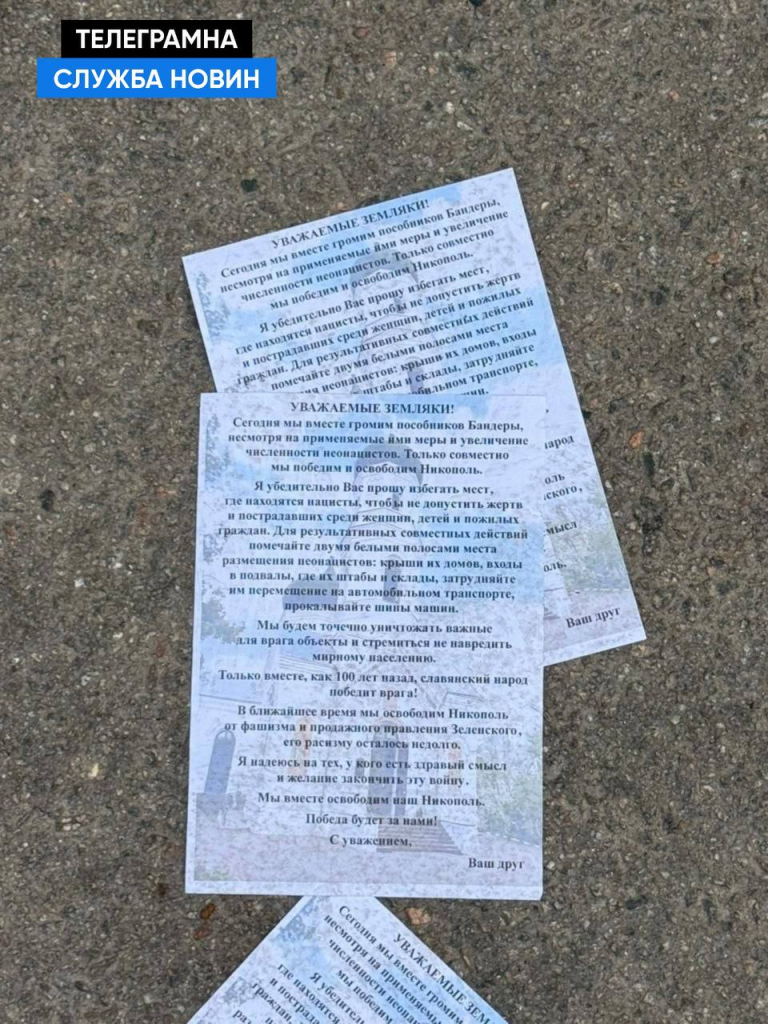 ТЕЛЕГРАМНА
СЛУЖБА НОВИН
УВАЖАЕМЫЕ ЗЕМЛЯКИ!
Сегодня мы вместе громим пособников Бандеры,
несмотря на применяемые ими меры и увеличение
численности неонацистов. Только совместно
мы победим и освободим Никополь.
Я убедительно Вас прошу избегать мест,
где находятся нацисты, чтобы не допустить жертв
и пострадавших среди женщин, детей и пожилых
граждан. Для результативных совместных действий
помечайте двумя белыми полосами места
неонацистов: крыши их домов, входы
штабы и склады, затрудняйте
транспорте,
народ
мысл
Ваш друг
УВАЖАЕМЫЕ ЗЕМЛЯКИ!
Сегодня мы вместе громим пособников Бандеры,
несмотря на применяемые ими меры и увеличение
численности неонацистов. Только совместно
мы победим и освободим Никополь.
Я убедительно Вас прошу избегать мест,
где находятся нацисты, чтобы не допустить жертв
и пострадавших среди женщин, детей и пожилых
граждан. Для результативных совместных действий
помечайте двумя белыми полосами места
размещения неонацистов: крыши их домов, входы
в подвалы, где их штабы и склады, затрудняйте
им перемещение на автомобильном транспорте,
прокалывайте шины машин.
Мы будем точечно уничтожать важные
для врага объекты и стремиться не навредить
мирному населению.
Только вместе, как 100 лет назад, славянский народ
победит врага!
В ближайшее время мы освободим Никополь
от фашизма и продажного правления Зеленского,
его расизму осталось недолго.
Я надеюсь на тех, у кого есть здравый смысл
и желание закончить эту войну.
Мы вместе освободим наш Никополь.
Победа будет за нами!
С уважением,
Ваш друг
УВАЖАЕМЫЕ ЗЕМ
Сегодня мы вместе громим
несмотря на применяемы
численности неонац
мы победим
Я убедител
где находятся
и пострада
граждан,